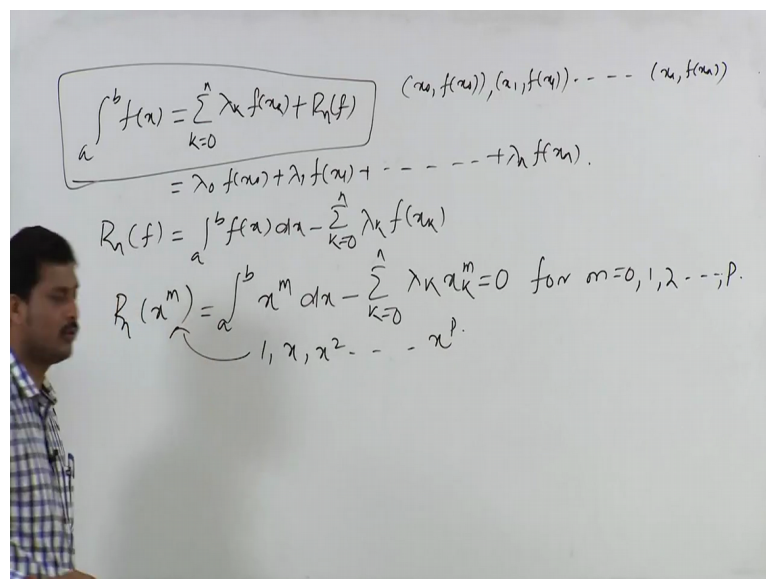 ∫_a^b f(x) = Σ_{k=0}^{n} λ_k f(x_k) + R_n(f)
(x_0, f(x_0)), (x_1, f(x_1)) - - - - - (x_n, f(x_n))
= λ_0 f(x_0) + λ_1 f(x_1) + - - - - - - + λ_n f(x_n).
R_n(f) = ∫_a^b f(x) dx - Σ_{k=0}^{n} λ_k f(x_k)
R_n(x^m) = ∫_a^b x^m dx - Σ_{k=0}^{n} λ_k x_k^m = 0 for m=0,1,2 ---,p.
1, x, x^2 - - - x^p.